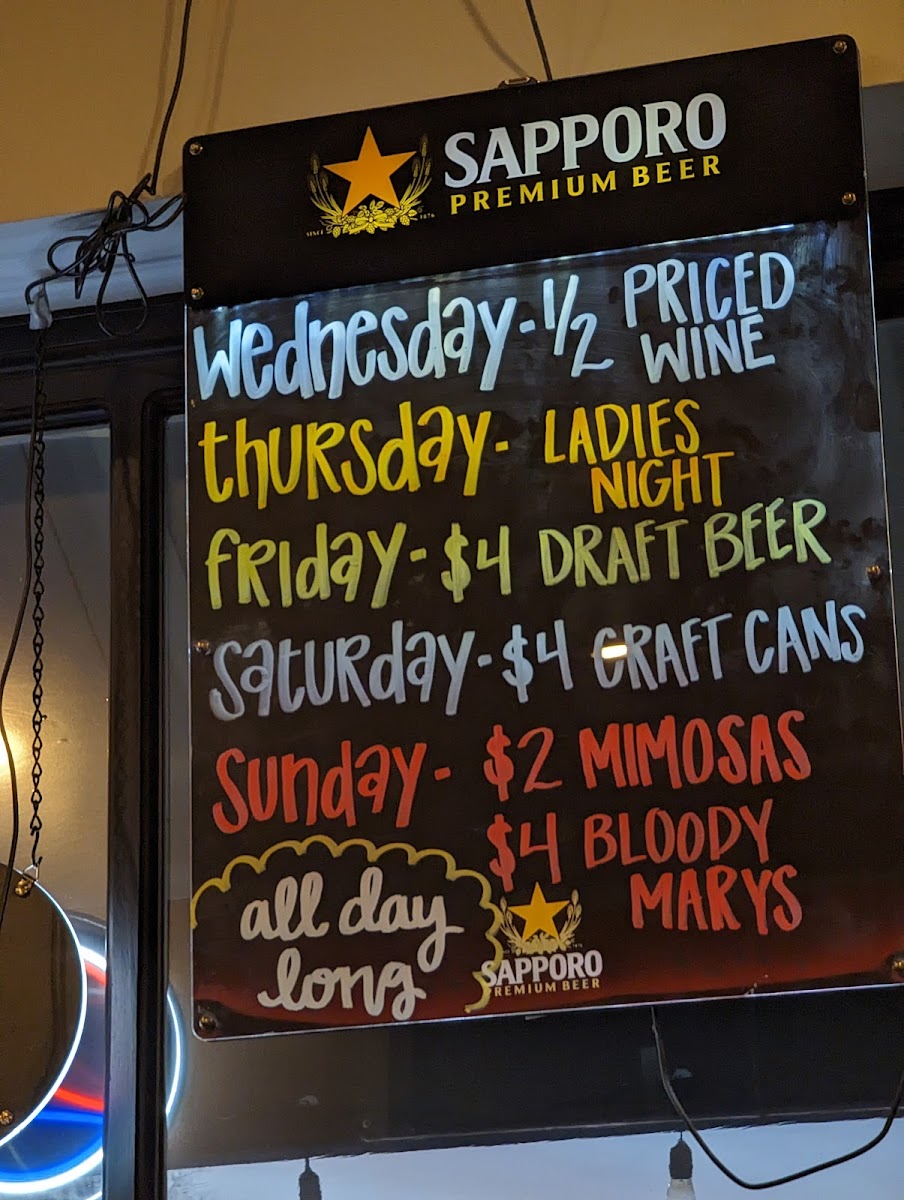 SAPPORO
PREMIUM BEER
SINCE 1876
Wednesday - 1/2 PRICED
WINE
thursday - LADIES
NIGHT
friday - $4 DRAFT BEER
saturday - $4 CRAFT CANS
sunday - $2 MIMOSAS
$4 BLOODY
MARYS
all day
long
SAPPORO
PREMIUM BEER